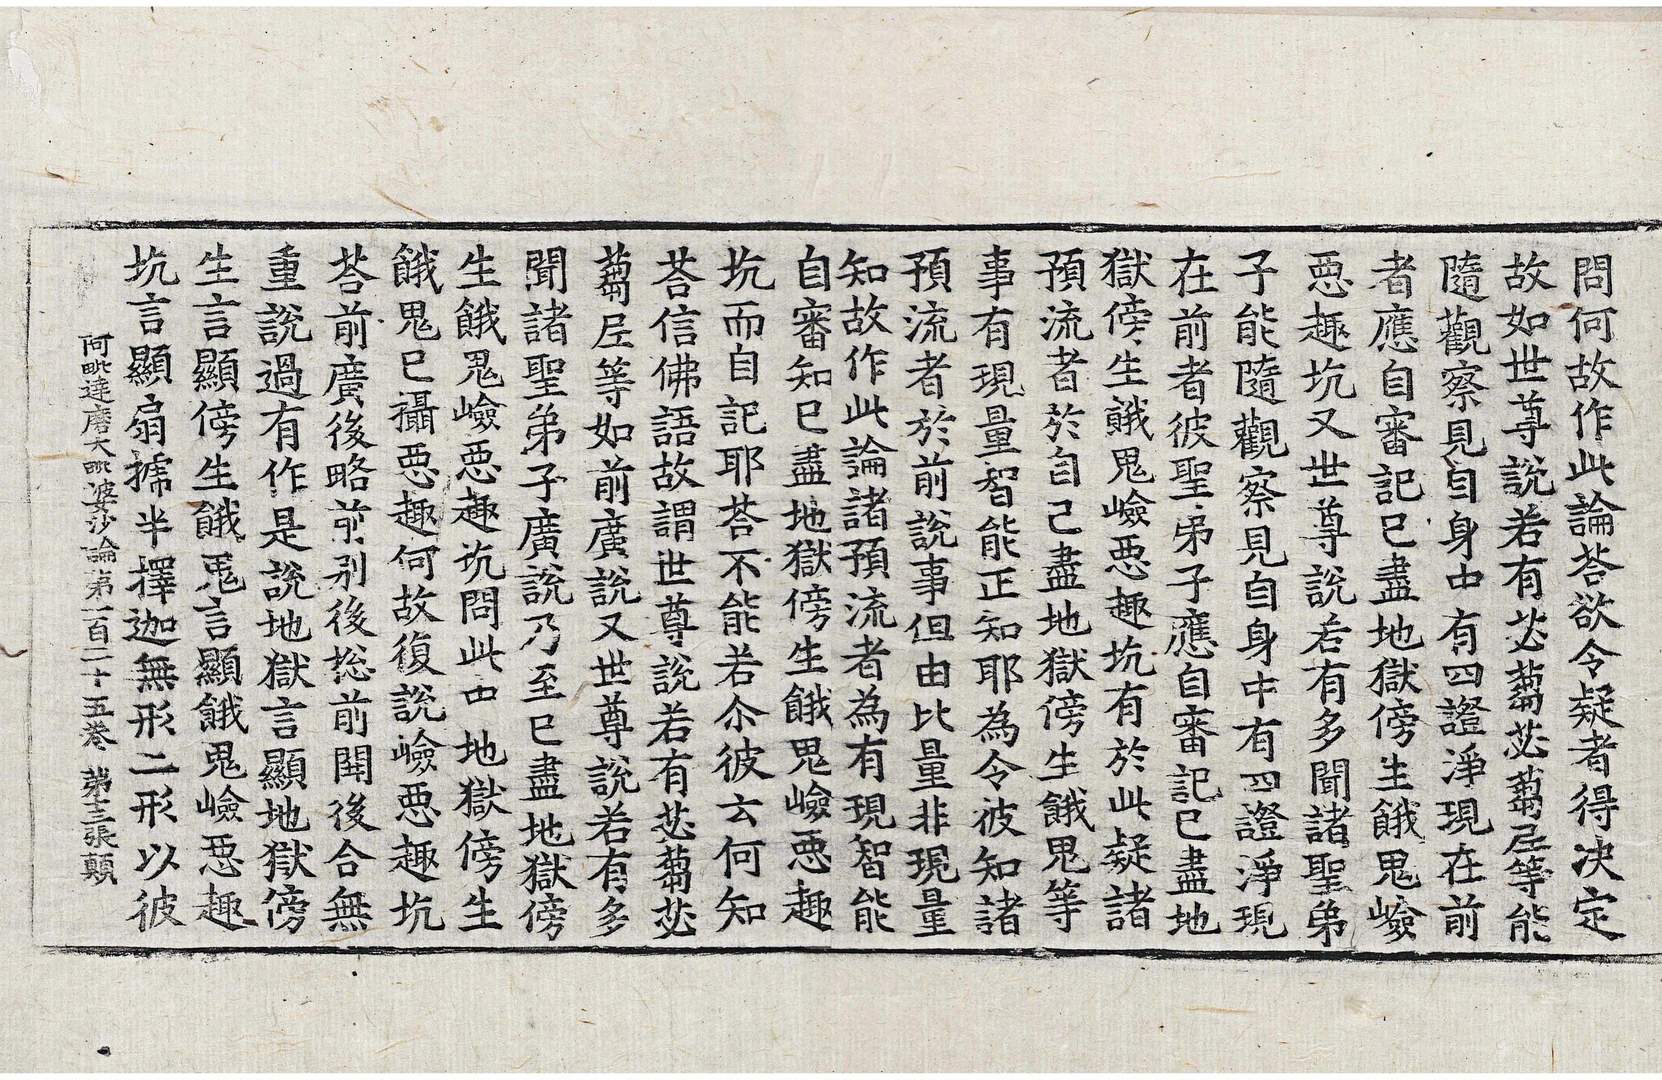 問何故作此論荅欲令疑者得決定
故如世尊說若有苾蒭苾蒭尼等能
隨觀察見自身中有四證淨現在前
者應自審記已盡地獄傍生餓鬼嶮
惡趣坑又世尊說若有多聞諸聖弟
子能隨觀察見自身中有四證淨現
在前者彼聖弟子應自審記已盡地
獄傍生餓鬼嶮惡趣坑有於此疑諸
預流者於自己盡地獄傍生餓鬼等
事有現量智能正知耶為令彼知諸
預流者於前說事但由比量非現量
知故作此論諸預流者為有現智能
自審知已盡地獄傍生餓鬼嶮惡趣
坑而自記耶荅不能若尒彼云何知
荅信佛語故謂世尊說若有苾蒭苾
蒭尼等如前廣說又世尊說若有多
聞諸聖弟子廣說乃至已盡地獄傍
生餓鬼嶮惡趣坑問此中地獄傍生
餓鬼已攝惡趣何故復說嶮惡趣坑
荅前廣後略前別後捴前開後合無
重說過有作是說地獄言顯地獄傍
生言顯傍生餓鬼言顯餓鬼嶮惡趣
坑言顯扇搋半擇迦無形二形以彼
阿毗達磨大毗婆沙論第一百二十五卷　第十三張　顛